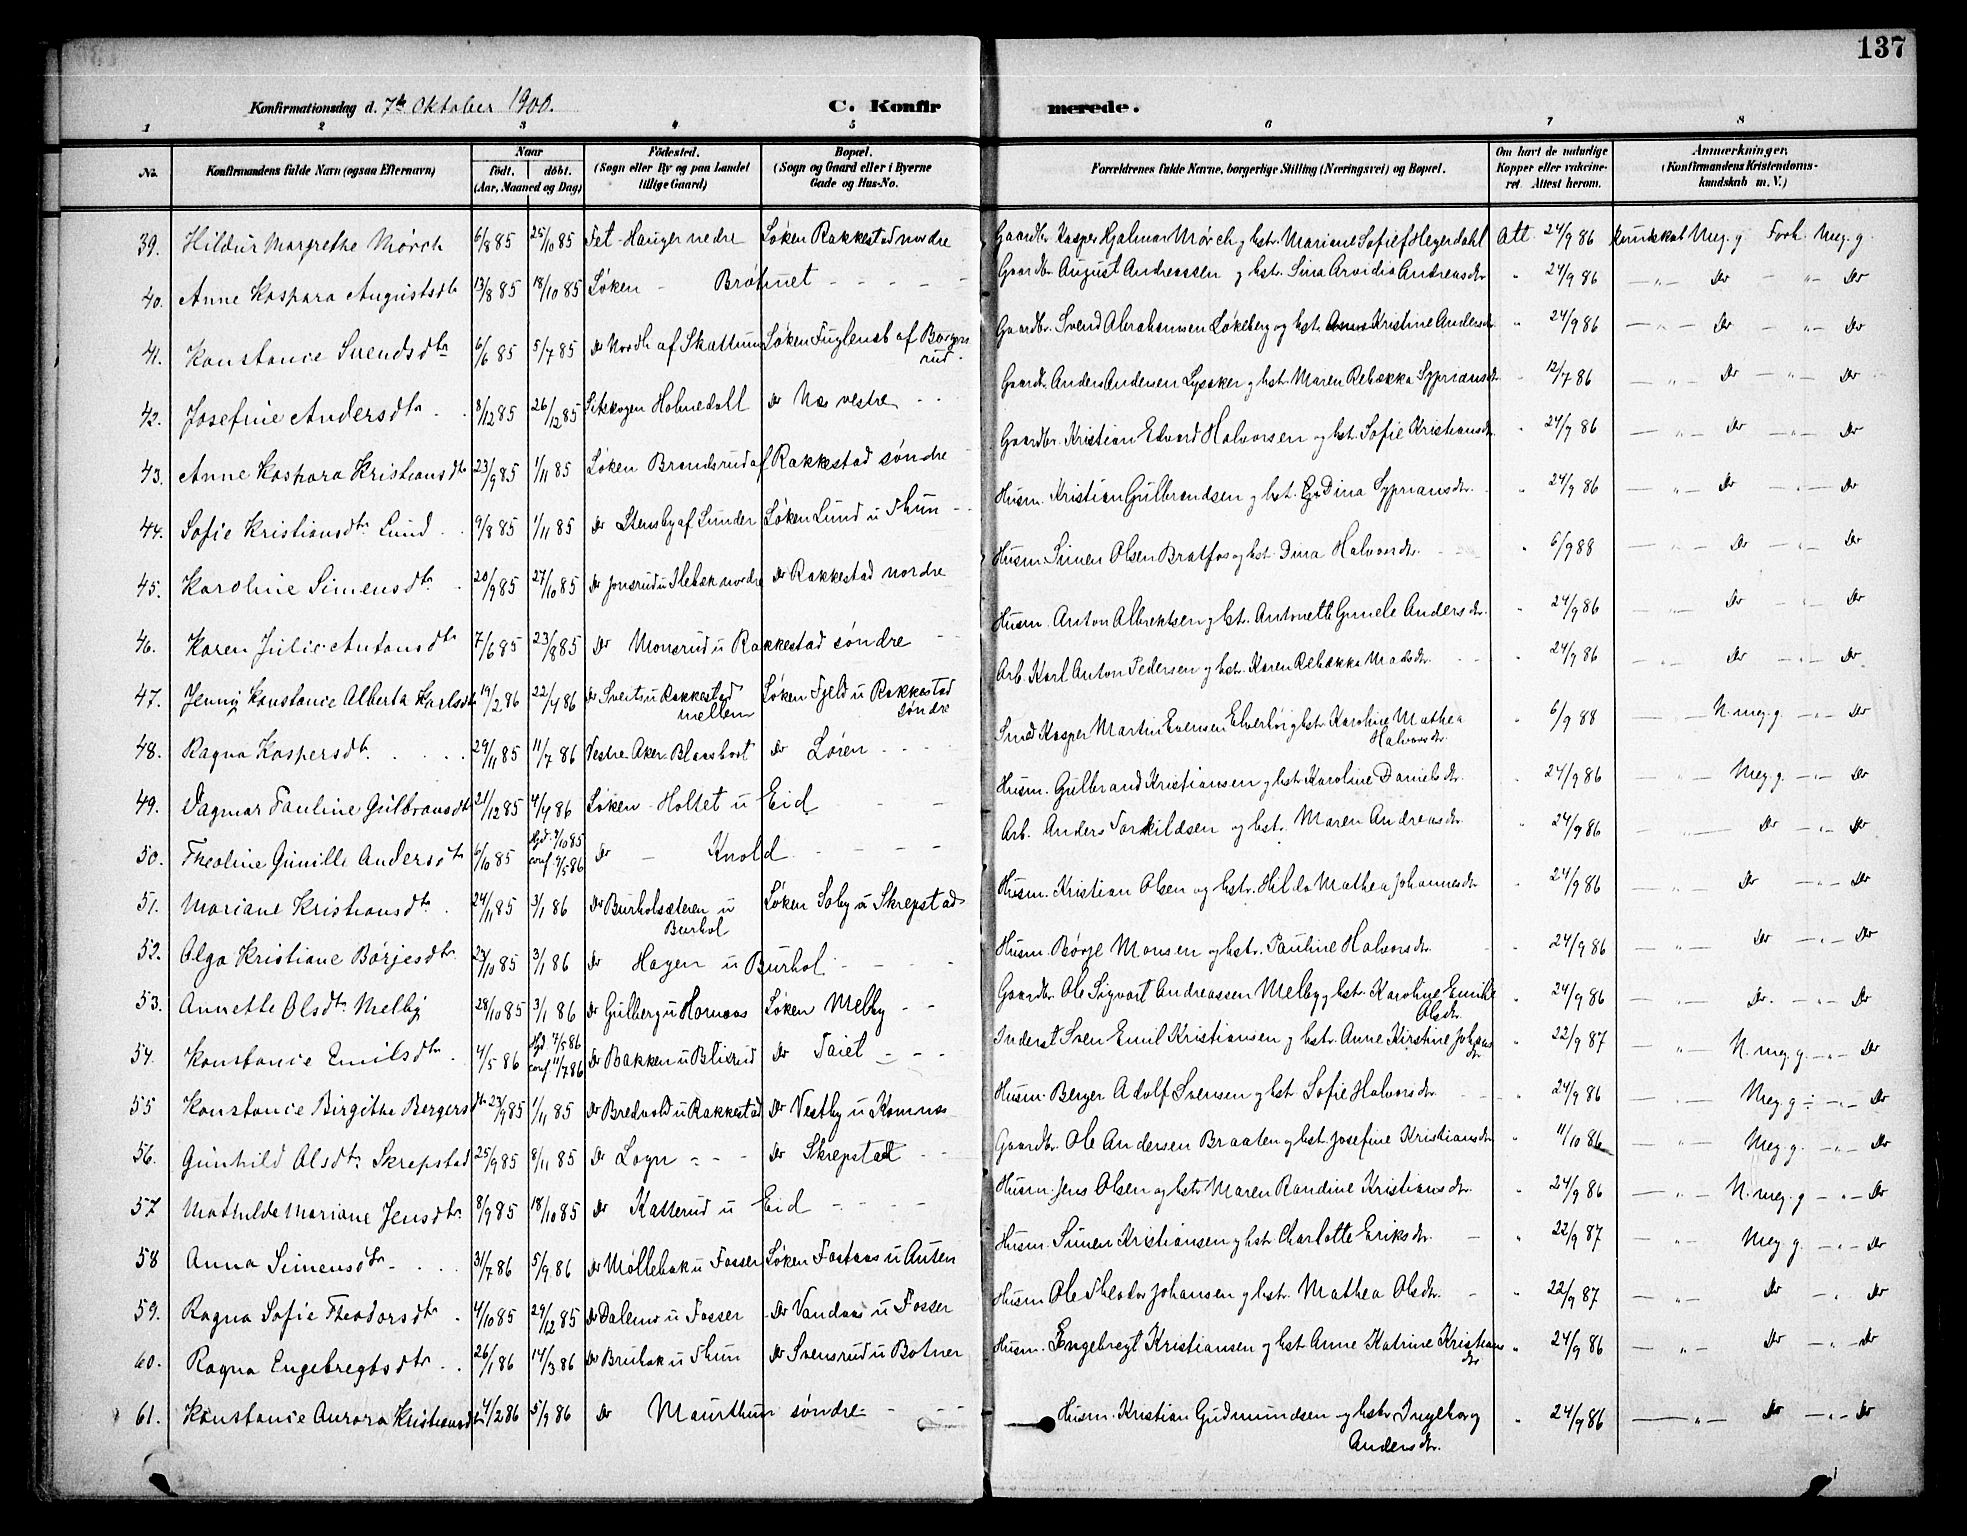 137
Konfirmationsdag d. 7de Oktober 1900.
C. Konfirmerede.
1 2 3 4 5 6 7 8
No. Konfirmandens fulde Navn (ogsaa Efternavn) Naar født. døbt. (Aar, Maaned og Dag) Fødested. (Sogn eller By og paa Landet tillige Gaard) Bopæl. (Sogn og Gaard eller i Byerne Gade og Hus-No. Forældrenes fulde Navne, borgerlige Stilling (Næringsvei) og Bopæl. Om havt de naturlige Kopper eller vakcineret. Attest herom. Anmærkninger, (Konfirmandens Kristendomskundskab m. V.)
39. Hildur Margrethe Mørch 6/8 85 25/10 85 Fet - Hauger nedre Løken Rakkestad nordre Gaardbr. Kasper Hjalmar Mørch og hstr. Mariane Sofie f Heyerdahl Att. 24/9 86 Kundskab Meg. g. Forh. Meg. g.
40. Anne Kaspara Augustsdtr 13/8 85 18/10 85 Løken - Brøtmet - - - - Gaardbr. August Andreassen og hstr. Lina Arvidia Andreasdtr " 24/9 86 — " — Do — " — Do
41. Konstance Svendsdtr 6/6 85 5/7 85 Do Nordli af Skattum Løken Fuglenab af Borgersrud. Gaardbr. Svend Abrahamsen Løkeberg og hstr. Kristine Andersdtr " 24/9 86 — " — Do — " — Do
42. Josefine Andersdtr 8/12 85 26/12 85 Setskogen Holmedahl Do Næs vestre - - Gaardbr. Anders Andersen Lysaker og hstr. Maren Rebækka Syprians dtr " 12/7 86 — " — Do — " — Do
43. Anne Kaspara Kristiansdtr 23/9 85 1/11 85 Løken Brandsrud af Rakkestad søndre - Gaardbr. Kristian Edvard Halvorsen og hstr. Sofie Kristiansdtr. " 24/9 86 — " — Do — " — Do
44. Sofie Kristiansdtr Lund 9/8 85 1/11 85 Do Stensby af Sunder Løken Lund u Thun - - Husm. Kristian Gulbrandsen og hstr. Dina Sypriansdtr. " 24/9 86 — " — Do — " — Do
45. Karoline Simensdtr 20/9 85 27/10 85 Do Jonsrud u Slebæk nordre Do Rakkestad nordre Husm. Simen Olsen Bratfos og hstr. Dina Halvorsdtr. " 6/9 88 — " — Do — " — Do
46. Karen Julie Antonsdtr 7/6 85 23/8 85 Do Monsrud u Rakkestad søndre - - Husm. Anton Albrektsen og hstr. Antonette Gunele Andersdtr. " 24/9 86 — " — Do — " — Do
47. Jenny Konstance Alberta Karlsdtr 19/2 86 22/4 86 Do Sveits u Rakkestad mellem Løken Fjeld u Rakkestad søndre Arb. Karl Anton Pedersen og hstr. Karen Rebækka Madsdtr. " 24/9 86 — " — Do — " — Do
48. Ragna Kaspersdtr. 29/11 85 11/7 86 Vestre Aker Do Løren - - - Smed Kasper Martin Evensen Elverhøi og hstr. Karoline Mathea Halvorsdtr. " 6/9 88 — " — N. meg. g. — " — Do
49. Dagmar Pauline Gulbransdtr 21/12 85 4/4 86 Løken - Holtet u Eid - - Husm. Gulbrand Kristiansen og hstr. Karoline Danielsdtr. " 24/9 86 — " — Meg. g. — " — Do
50. Theoline Gunille Andersdtr 6/10 85 7/10 85 conf 9/5 86 Do — Knold - - - - Arb. Anders Torkildsen og hstr. Maren Andreasdtr. " 24/9 86 — " — Do — " — Do
51. Mariane Kristiansdtr. 24/11 85 3/1 86 Do Burholsæteren u Burhol Løken Soby u Skrepstad Husm. Kristian Olsen og hstr. Hilda Mathea Johannesdtr " 24/9 86 — " — Do — " — Do
52. Olga Kristiane Børjesdtr 23/10 85 3/1 86 Do Hagen u Burhol - - - - Husm. Børge Monsen og hstr. Pauline Halvorsdtr. " 24/9 86 — " — Do — " — Do
53. Annette Olsdtr. Melby 28/10 85 3/1 86 Do Gulberg u Hornæs Løken Melby - - Gaardbr. Ole Sigvart Andreassen Melby og hstr. Karoline Emilie Olsdtr " 24/9 86 — " — Do. — " — Do
54. Konstance Emilsdtr. 4/5 86 7/5 86 conf 11/7 86 Do Bakken u Blixrud Do Taiet - - - Inderst Sven Emil Kristiansen og hstr. Anne Kirstine Johansdtr " 22/9 87 — " — N. meg. g. — " — Do
55 Konstance Birgithe Bergersdtr 23/9 85 1/11 85 Do Bredvold u Rakkestad Do Vestby u Komnæs Husm. Berger Adolf Svensen og hstr. Sofie Halvorsdtr " 24/9 86 — " — Meg. g. — " — Do
56. Gunhild Olsdtr. Skrepstad 25/9 85 8/11 85 Do Logn - - - Do Skrepstad - - Gaardbr. Ole Andersen Braaten og hstr. Josefine Kristiansdtr " 11/10 86 — " — Meg. g. — " — Do
57 Mathilde Mariane Jensdtr. 8/9 85 18/10 85 Do Katterud u Eid - - - - Husm. Jens Olsen og hstr. Maren Randine Kristiansdtr. " 24/9 86 — " — N. meg. g — " — Do
58 Anna Simensdtr. 31/7 86 5/9 86 Do Møllebæk u Fosser Løken Fostaas u Auten Husm. Simen Kristiansen og hstr. Charlotte Eriksdtr. " 22/9 87 — " — Meg. g. — " — Do
59. Ragna Sofie Theodorsdtr. 4/10 85 29/12 85 Do Dalemo u Fosser Do Vandaas u Fosser Husm. Ole Theodor Johansen og hstr. Mathea Olsdtr. " 22/9 87 — " — Do — " — Do
60. Ragna Engebregtsdtr. 26/1 86 14/3 86 Do Brubæk u Thun Do Svensrud u Botner Husm. Engebregt Kristiansen og hstr. Anne Katrine Kristiansdtr " 24/9 86 — " — Do — " — Do
61. Konstance Aurora Kristiansdtr 4/2 86 5/9 86 Do Maurthun søndre - - - Husm. Kristian Gudmundsen og hstr. Ingeborg Andersdtr. " 24/9 86 — " — Do — " — Do